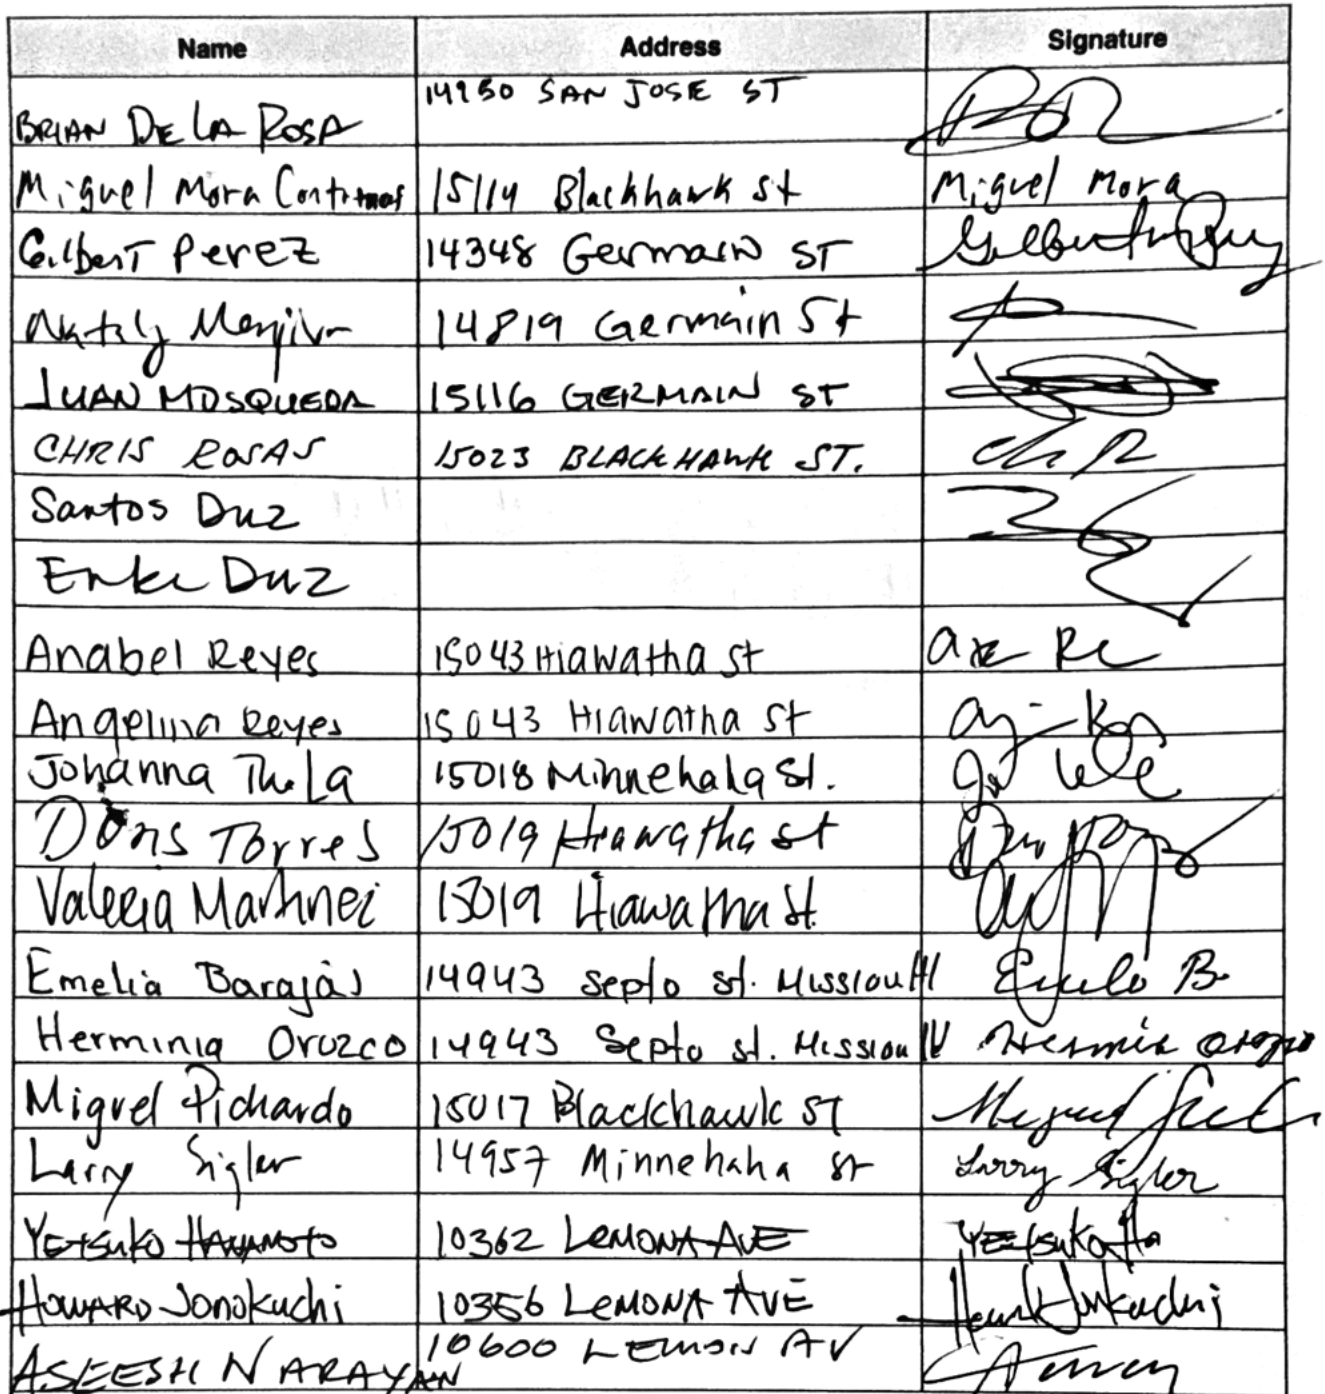 Name Address Signature
BRIAN DE LA ROSA 14950 SAN JOSE ST
Miguel Mora Contreras 15114 Blackhawk st Miguel Mora
Gilbert Perez 14348 Germain ST
Nataly 14819 Germain St
JUAN MOSQUEDA 15116 GERMAIN ST
CHRIS ROSAS 15023 BLACKHAWK ST.
Santos Duz
Duz
Anabel Reyes 15043 Hiawatha St
Angelina Reyes 15043 Hiawatha St
Johanna 15018 Minnehaha St.
Doris Torres 15019 Hiawatha st
Valeria Martinez 15019 Hiawatha St.
Emelia Barajas 14943 Septo st. Mission Hl B.
Herminia Orozco 14943 Septo st. Mission Hl
Miguel Pichardo 15017 Blackhawk ST Miguel
Larry Sigler 14957 Minnehaha St Larry Sigler
YETSUKO HAMAMOTO 10362 LEMONA AVE YETSUKO
HOWARD Jonokuchi 10356 LEMONA AVE
ASEESH NARAYAN 10600 LEMON AV